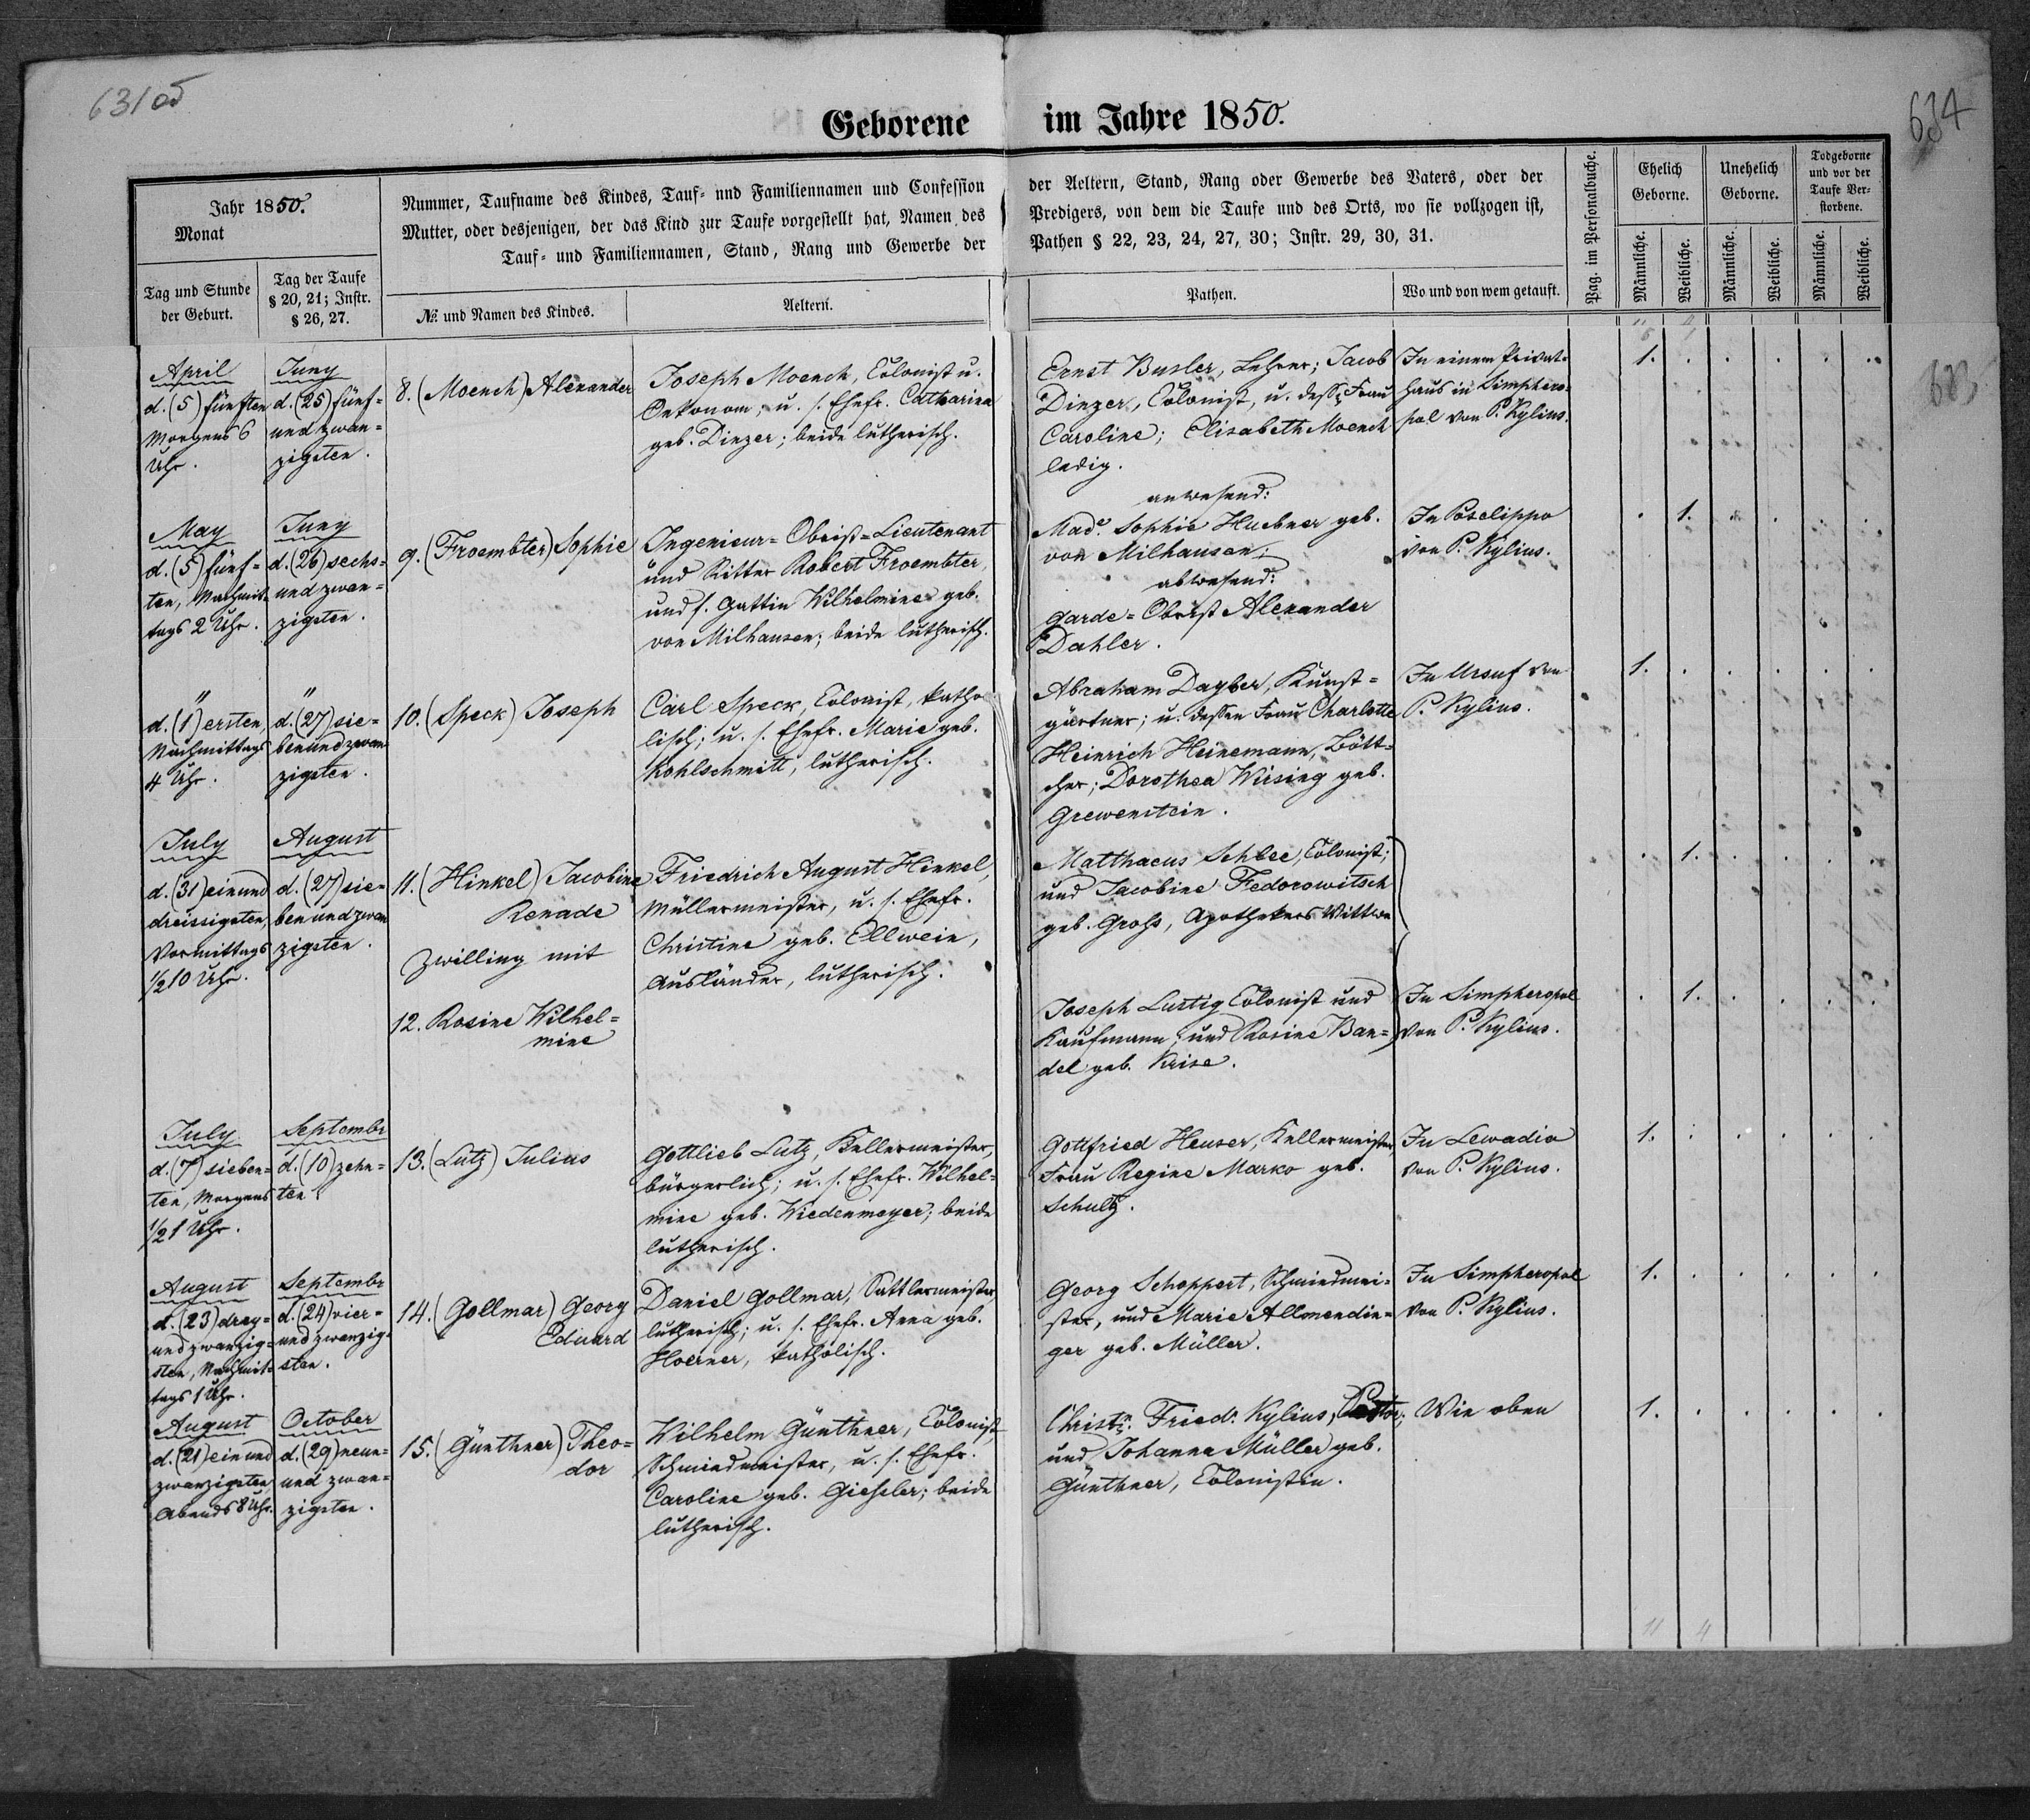 631 об
634
683
Geborene im Jahre 1850.
Jahr 1850.
Monat
Tag und Stunde
der Geburt.
Tag der Taufe
§ 20, 21; Instr.
§ 26, 27.
Nummer, Taufname des Kindes, Tauf- und Familiennamen und Confession
der Aeltern, Stand, Rang oder Gewerbe des Vaters, oder der
Mutter, oder desjenigen, der das Kind zur Taufe vorgestellt hat, Namen des
Predigers, von dem die Taufe und des Orts, wo sie vollzogen ist,
Tauf- und Familiennamen, Stand, Rang und Gewerbe der
Pathen § 22, 23, 24, 27, 30; Instr. 29, 30, 31.
No. und Namen des Kindes.
Aeltern.
Pathen.
Wo und von wem getauft.
Pag. im Personalbuche.
Ehelich
Geborne.
Unehelich
Geborne.
Todgeborne
und vor der
Taufe Ver-
storbene.
Männliche.
Weibliche.
Männliche.
Weibliche.
Männliche.
Weibliche.
April
d. (5) fünften
Morgens 6
Uhr.
Juny
d. (25) fünf-
und zwan-
zigsten.
8. (Moench) Alexander
Joseph Moench, Colonist u.
Oekonom, u. s. Ehefr. Catharina
geb. Dinzer; beide lutherisch.
Ernst Busler, Lehrer; Jacob
Dinzer, Colonist, u. dess. Frau
Caroline; Elisabeth Moench
ledig.
In einem Privat-
haus in Simphero-
pol von P. Kylius.
1.
May
d. (5) fünf-
ten, Nachmit-
tags 2 Uhr.
Juny
d. (26) sechs-
und zwan-
zigsten.
9. (Froembter) Sophie
Ingenieur-Obrist-Lieutenant
und Ritter Robert Froembter,
und s. Gattin Wilhelmine geb.
von Milhausen; beide lutherisch.
anwesend:
Made Sophie Huebner geb.
von Milhausen;
abwesend:
Garde-Obrist Alexander
Dahler.
In Poselippo
von P. Kylius.
1.
"
d. (1) ersten,
Nachmittags
4 Uhr.
"
d. (27) sie-
ben und zwan
zigsten.
10. (Speck) Joseph
Carl Speck, Colonist, katho
lisch; u. s. Ehefr. Marie geb.
Kohlschmitt, lutherisch.
Abraham Dagber, Kunst-
gärtner; u. dessen Frau Charlotte
Heinrich Heinemann, Bött-
cher; Dorothea Wirsing geb.
Grewenstein.
In Ursuf von
P. Kylius.
1.
July
d. (31) ein und
dreissigsten,
Vormittags
1/2 10 Uhr.
August
d. (27) sie-
ben und zwan
zigsten.
11. (Hinkel) Jacobine
Renade
Zwilling mit
12. Rosine Wilhel-
mine
Friedrich August Hinkel,
Müllermeister, u. s. Ehefr.
Christine geb. Ellwein,
Ausländer, lutherisch.
Matthaeus Schlee, Colonist;
und Jacobine Fedorowitsch
geb. Gross, Apothekers Wittwe
1.
Joseph Lustig Colonist und
Kaufmann, und Rosine Ban-
del geb. Krise.
In Simpheropol
von P. Kylius.
1.
July
d. (7) sieben-
ten, Morgens
1/2 1 Uhr.
Septembr
d. (10) zehn-
ten.
13. (Lutz) Julius
Gottlieb Lutz, Kellermeister,
bürgerlich; u. s. Ehefr. Wilhel-
mine geb. Wiedenmeyer; beide
lutherisch.
Gottfried Heuser, Kellermeister,
Frau Regine Marko geb.
Schultz.
In Lewadia
von P. Kylius.
1.
August
d. (23) drey-
und zwanzig-
sten, Nachmit-
tags 1 Uhr.
Septembr
d. (24) vier-
und zwanzig-
sten.
14. (Gollmar) Georg
Eduard
Daniel Gollmar, Sattlermeister,
lutherisch; u. s. Ehefr. Anna geb.
Hoerner, katholisch.
Georg Schoppert, Schmiedmei-
ster, und Marie Allmendin-
ger geb. Müller.
In Simpheropol
von P. Kylius.
1.
August
d. (21) ein und
zwanzigsten
Abends 8 Uhr.
October
d. (29) neun-
und zwan-
zigsten.
15. (Günthner) Theo-
dor
Wilhelm Günthner, Colonist,
Schmiedmeister, u. s. Ehefr.
Caroline geb. Gieseler; beide
lutherisch.
Christn. Friedr. Kylius, Pastor;
und Johanna Müller geb.
Günthner, Colonistin.
Wie oben
1.
11 4